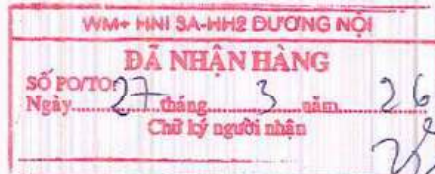 WM+ HNI SA-HH2 DƯƠNG NỘI
ĐÃ NHẬN HÀNG
SỐ PO/TO:
Ngày 27 tháng 3 năm 26
Chữ ký người nhận